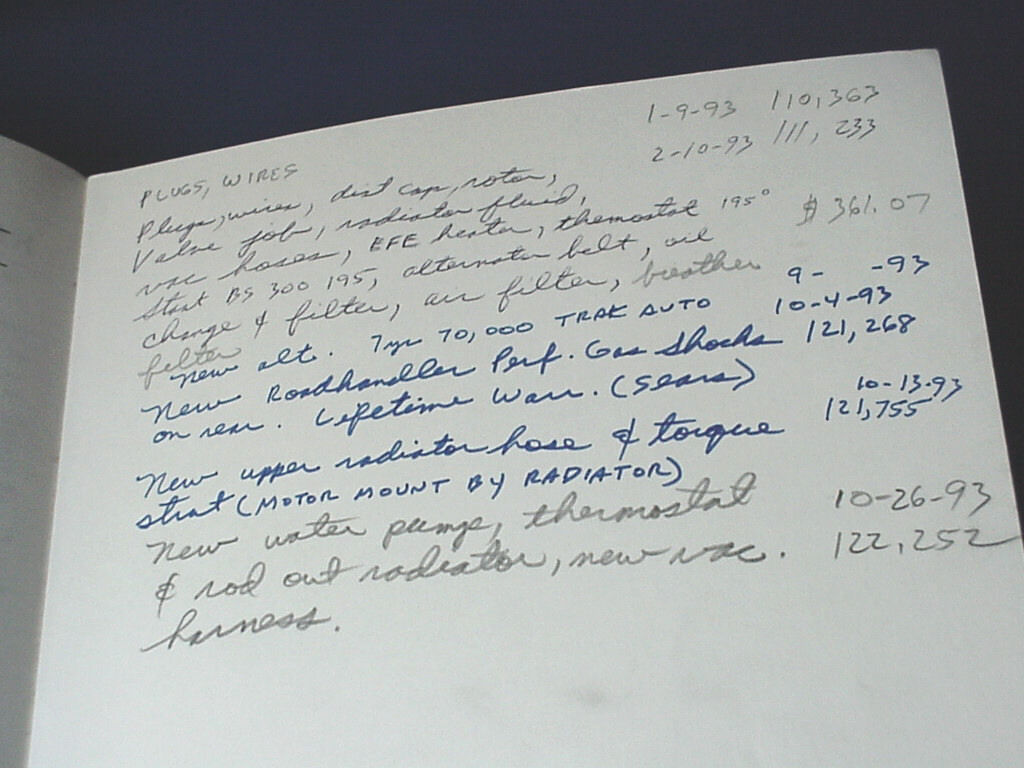 PLUGS, WIRES 1-9-93 110,363
Plugs, wires, dist cap, rotor, 2-10-93 111,233
Valve job, radiator fluid,
vac hoses, EFE heater, themostat 195° $361.07
Stant BS 300 195, alternator belt, oil
change & filter, air filter, breather
filter
New alt. 7yr 70,000 TRAK AUTO 9- -93
New Roadhandler Perf. Gas Shocks 10-4-93
on rear. Lifetime Warr. (Sears) 121,268
New upper radiator hose & torque 10-13-93
strut (MOTOR MOUNT BY RADIATOR) 121,755
New water pump, thermostat 10-26-93
& rod out radiator, new vac. 122,252
harness.